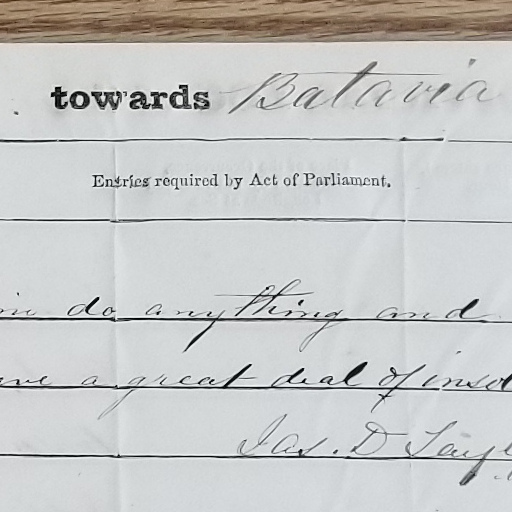 towards Batavia
Entries required by Act of Parliament.
do anything and
a great deal of
Jas. D